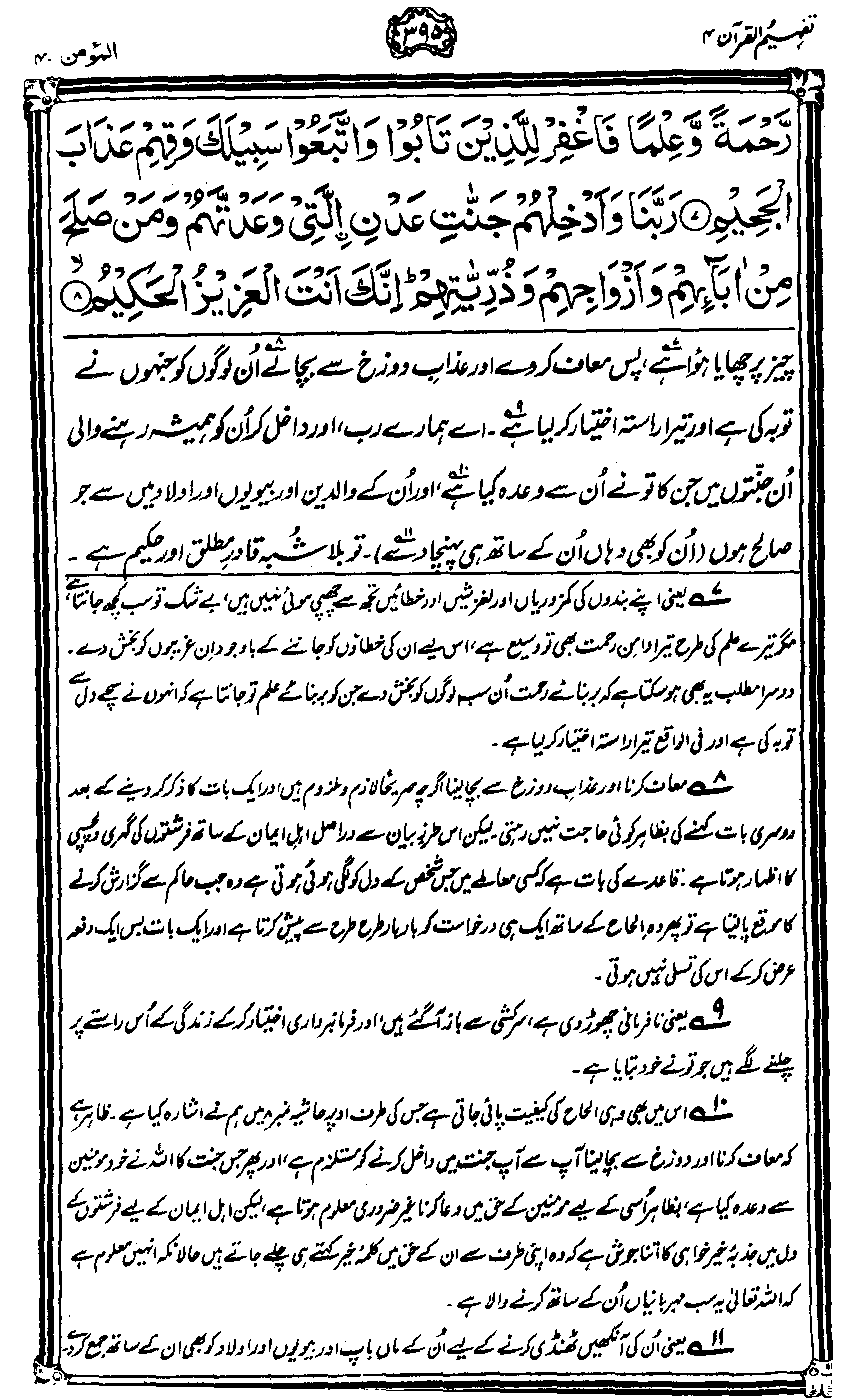 تفہیم القرآن ۴
۳۹۵
المؤمن ۴۰
رَّحْمَةً وَّعِلْمًا فَاغْفِرْ لِلَّذِيْنَ تَابُوْا وَاتَّبَعُوْا سَبِيْلَكَ وَقِهِمْ عَذَابَ
الْجَحِيْمِ ۷ رَبَّنَا وَاَدْخِلْهُمْ جَنّٰتِ عَدْنِ اِلَّتِيْ وَعَدْتَّهُمْ وَمَنْ صَلَحَ
مِنْ اٰبَآئِهِمْ وَاَزْوَاجِهِمْ وَذُرِّيّٰتِهِمْ ؕ اِنَّكَ اَنْتَ الْعَزِيْزُ الْحَكِيْمُ ۙ ۸
چیز پر چھایا ہوا ہے،۷ پس معاف کر دے اور عذابِ دوزخ سے بچا لے۸ اُن لوگوں کو جنہوں نے
توبہ کی ہے اور تیرا راستہ اختیار کر لیا ہے۹۔ اے ہمارے رب، اور داخل کر اُن کو ہمیشہ رہنے والی
اُن جنّتوں میں جن کا تو نے اُن سے وعدہ کیا ہے،۱۰ اور اُن کے والدین اور بیویوں اور اولاد میں سے جو
صالح ہوں (اُن کو بھی وہاں اُن کے ساتھ ہی پہنچا دے۱۱)۔ تو بلا شُبہ قادرِ مطلق اور حکیم ہے۔
۷ یعنی اپنے بندوں کی کمزوریاں اور لغزشیں اور خطائیں تجھ سے چھپی ہوئی نہیں ہیں، بے شک تو سب کچھ جانتا ہے،
مگر تیرے علم کی طرح تیرا دامنِ رحمت بھی تو وسیع ہے، اس لیے ان کی خطاؤں کو جاننے کے باوجود ان غریبوں کو بخش دے۔
دوسرا مطلب یہ بھی ہو سکتا ہے کہ بربنائے رحمت اُن سب لوگوں کو بخش دے جن کو بربنائے علم تو جانتا ہے کہ انہوں نے سچے دل سے
توبہ کی ہے اور فی الواقع تیرا راستہ اختیار کر لیا ہے۔
۸ معاف کرنا اور عذابِ دوزخ سے بچا لینا اگرچہ صریحًا لازم و ملزوم ہیں اور ایک بات کا ذکر کر دینے کے بعد
دوسری بات کہنے کی بظاہر کوئی حاجت نہیں رہتی۔ لیکن اس طرزِ بیان سے دراصل اہلِ ایمان کے ساتھ فرشتوں کی گہری دلچسپی
کا اظہار ہوتا ہے۔ قاعدے کی بات ہے کہ کسی معاملے میں جس شخص کے دل کو لگی ہوئی ہوتی ہے وہ جب حاکم سے گزارش کرنے
کا موقع پا لیتا ہے تو پھر وہ الحاح کے ساتھ ایک ہی درخواست کو بار بار طرح طرح سے پیش کرتا ہے اور ایک بات بس ایک دفعہ
عرض کر کے اس کی تسلی نہیں ہوتی۔
۹ یعنی نافرمانی چھوڑ دی ہے، سرکشی سے باز آ گئے ہیں، اور فرمانبرداری اختیار کر کے زندگی کے اُس راستے پر
چلنے لگے ہیں جو تو نے خود بتایا ہے۔
۱۰ اس میں بھی وہی الحاح کی کیفیت پائی جاتی ہے جس کی طرف اوپر حاشیہ نمبر ۸ میں ہم نے اشارہ کیا ہے۔ ظاہر ہے
کہ معاف کرنا اور دوزخ سے بچا لینا آپ سے آپ جنت میں داخل کرنے کو مستلزم ہے، اور پھر جس جنت کا اللہ نے خود مومنین
سے وعدہ کیا ہے، بظاہر اُسی کے لیے مومنین کے حق میں دعا کرنا غیر ضروری معلوم ہوتا ہے، لیکن اہلِ ایمان کے لیے فرشتوں کے
دل میں جذبۂ خیر خواہی کا اتنا جوش ہے کہ وہ اپنی طرف سے ان کے حق میں کلمۂ خیر کہتے ہی چلے جاتے ہیں حالانکہ انہیں معلوم ہے
کہ اللہ تعالیٰ یہ سب مہربانیاں اُن کے ساتھ کرنے والا ہے۔
۱۱ یعنی اُن کی آنکھیں ٹھنڈی کرنے کے لیے اُن کے ماں باپ اور بیویوں اور اولاد کو بھی ان کے ساتھ جمع کر دے۔